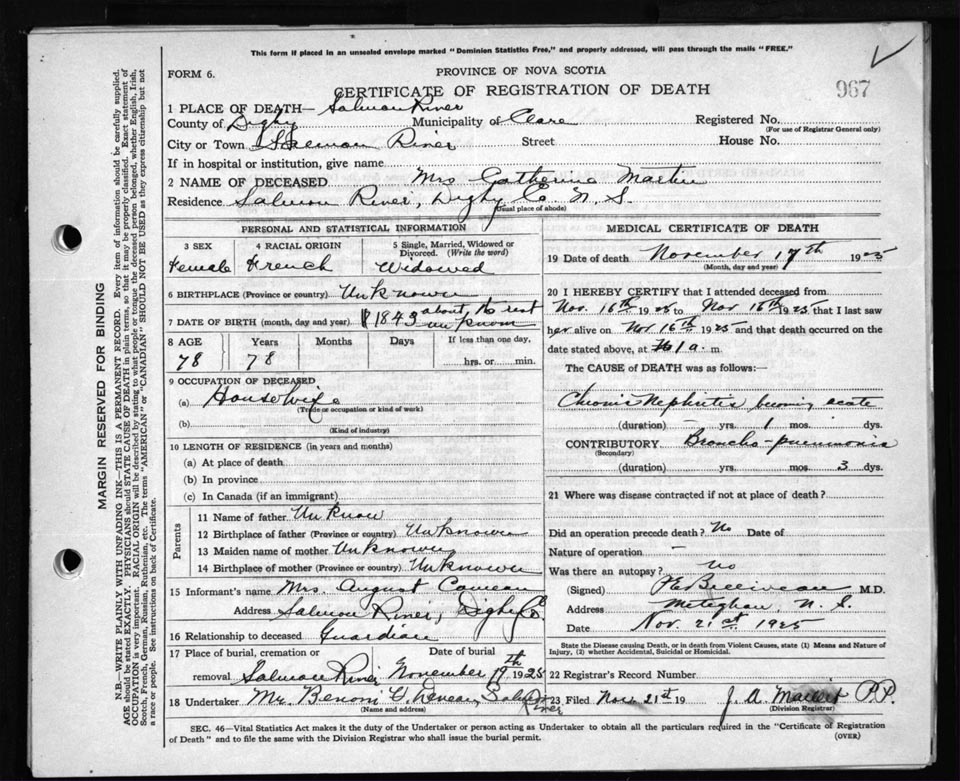 This form if placed in an unsealed envelope marked "Dominion Statistics Free," and properly addressed, will pass through the mails "FREE."
FORM 6.
PROVINCE OF NOVA SCOTIA
967
CERTIFICATE OF REGISTRATION OF DEATH
1 PLACE OF DEATH— Salmon River
County of Digby Municipality of Clare Registered No.
(For use of Registrar General only)
City or Town Salmon River Street House No.
If in hospital or institution, give name
2 NAME OF DECEASED Mrs Gatherine Martin
Residence Salmon River, Digby Co. N. S.
(Usual place of abode)
PERSONAL AND STATISTICAL INFORMATION
3 SEX 4 RACIAL ORIGIN 5 Single, Married, Widowed or Divorced. (Write the word)
Female French Widowed
6 BIRTHPLACE (Province or country) Unknown
7 DATE OF BIRTH (month, day and year) 1843 about, the rest unknown
8 AGE Years Months Days If less than one day,
78 78 hrs. or min.
9 OCCUPATION OF DECEASED
(a) House Wife
(Trade or occupation or kind of work)
(b)
(Kind of industry)
10 LENGTH OF RESIDENCE (in years and months)
(a) At place of death
(b) In province
(c) In Canada (if an immigrant)
Parents
11 Name of father Unknow
12 Birthplace of father (Province or country) Unknown
13 Maiden name of mother Unknown
14 Birthplace of mother (Province or country) Unknown
15 Informant's name Mrs. August Comeau
Address Salmon River, Digby Co.
16 Relationship to deceased Guardian
17 Place of burial, cremation or removal Date of burial
Salmon River November 19th 1925
18 Undertaker Mr. Benoni Salmon River
(Name and address)
MEDICAL CERTIFICATE OF DEATH
19 Date of death November 17th 1925
(Month, day and year)
20 I HEREBY CERTIFY that I attended deceased from
Nov. 16th 1925 to Nov 16th 1925 that I last saw
her alive on Nov 16th 1925 and that death occurred on
date stated above, at 1 a. m.
The CAUSE of DEATH was as follows:—
Chronic Nephritis becoming acute
(duration) – yrs. 1 mos. dys.
CONTRIBUTORY Broncho-pneumonia
(Secondary)
(duration) yrs. mos. 3 dys.
21 Where was disease contracted if not at place of death?
Did an operation precede death? No Date of
Nature of operation –
Was there an autopsy? no
(Signed) M.D.
Address Meteghan, N. S.
Date Nov. 21st 1925
State the Disease causing Death, or in death from Violent Causes, state (1) Means and Nature of Injury, (2) whether Accidental, Suicidal or Homicidal.
22 Registrar's Record Number
23 Filed Nov. 21st 19 J. A. P.P.
(Division Registrar)
SEC. 46—Vital Statistics Act makes it the duty of the Undertaker or person acting as Undertaker to obtain all the particulars required in the "Certificate of Registration
of Death" and to file the same with the Division Registrar who shall issue the burial permit. (OVER)
MARGIN RESERVED FOR BINDING
N.B.—WRITE PLAINLY WITH UNFADING INK—THIS IS A PERMANENT RECORD. Every item of information should be carefully supplied.
AGE should be stated EXACTLY. PHYSICIANS should STATE CAUSE OF DEATH in plain terms, so that it may be properly classified. Exact statement of
OCCUPATION is very important. RACIAL ORIGIN will be described by stating to what people or tongue the deceased person belonged, whether English, Irish,
Scotch, French, German, Russian, Ruthenian, etc. The terms "AMERICAN" or "CANADIAN" SHOULD NOT BE USED as they express citizenship but not
a race or people. See instructions on back of Certificate.